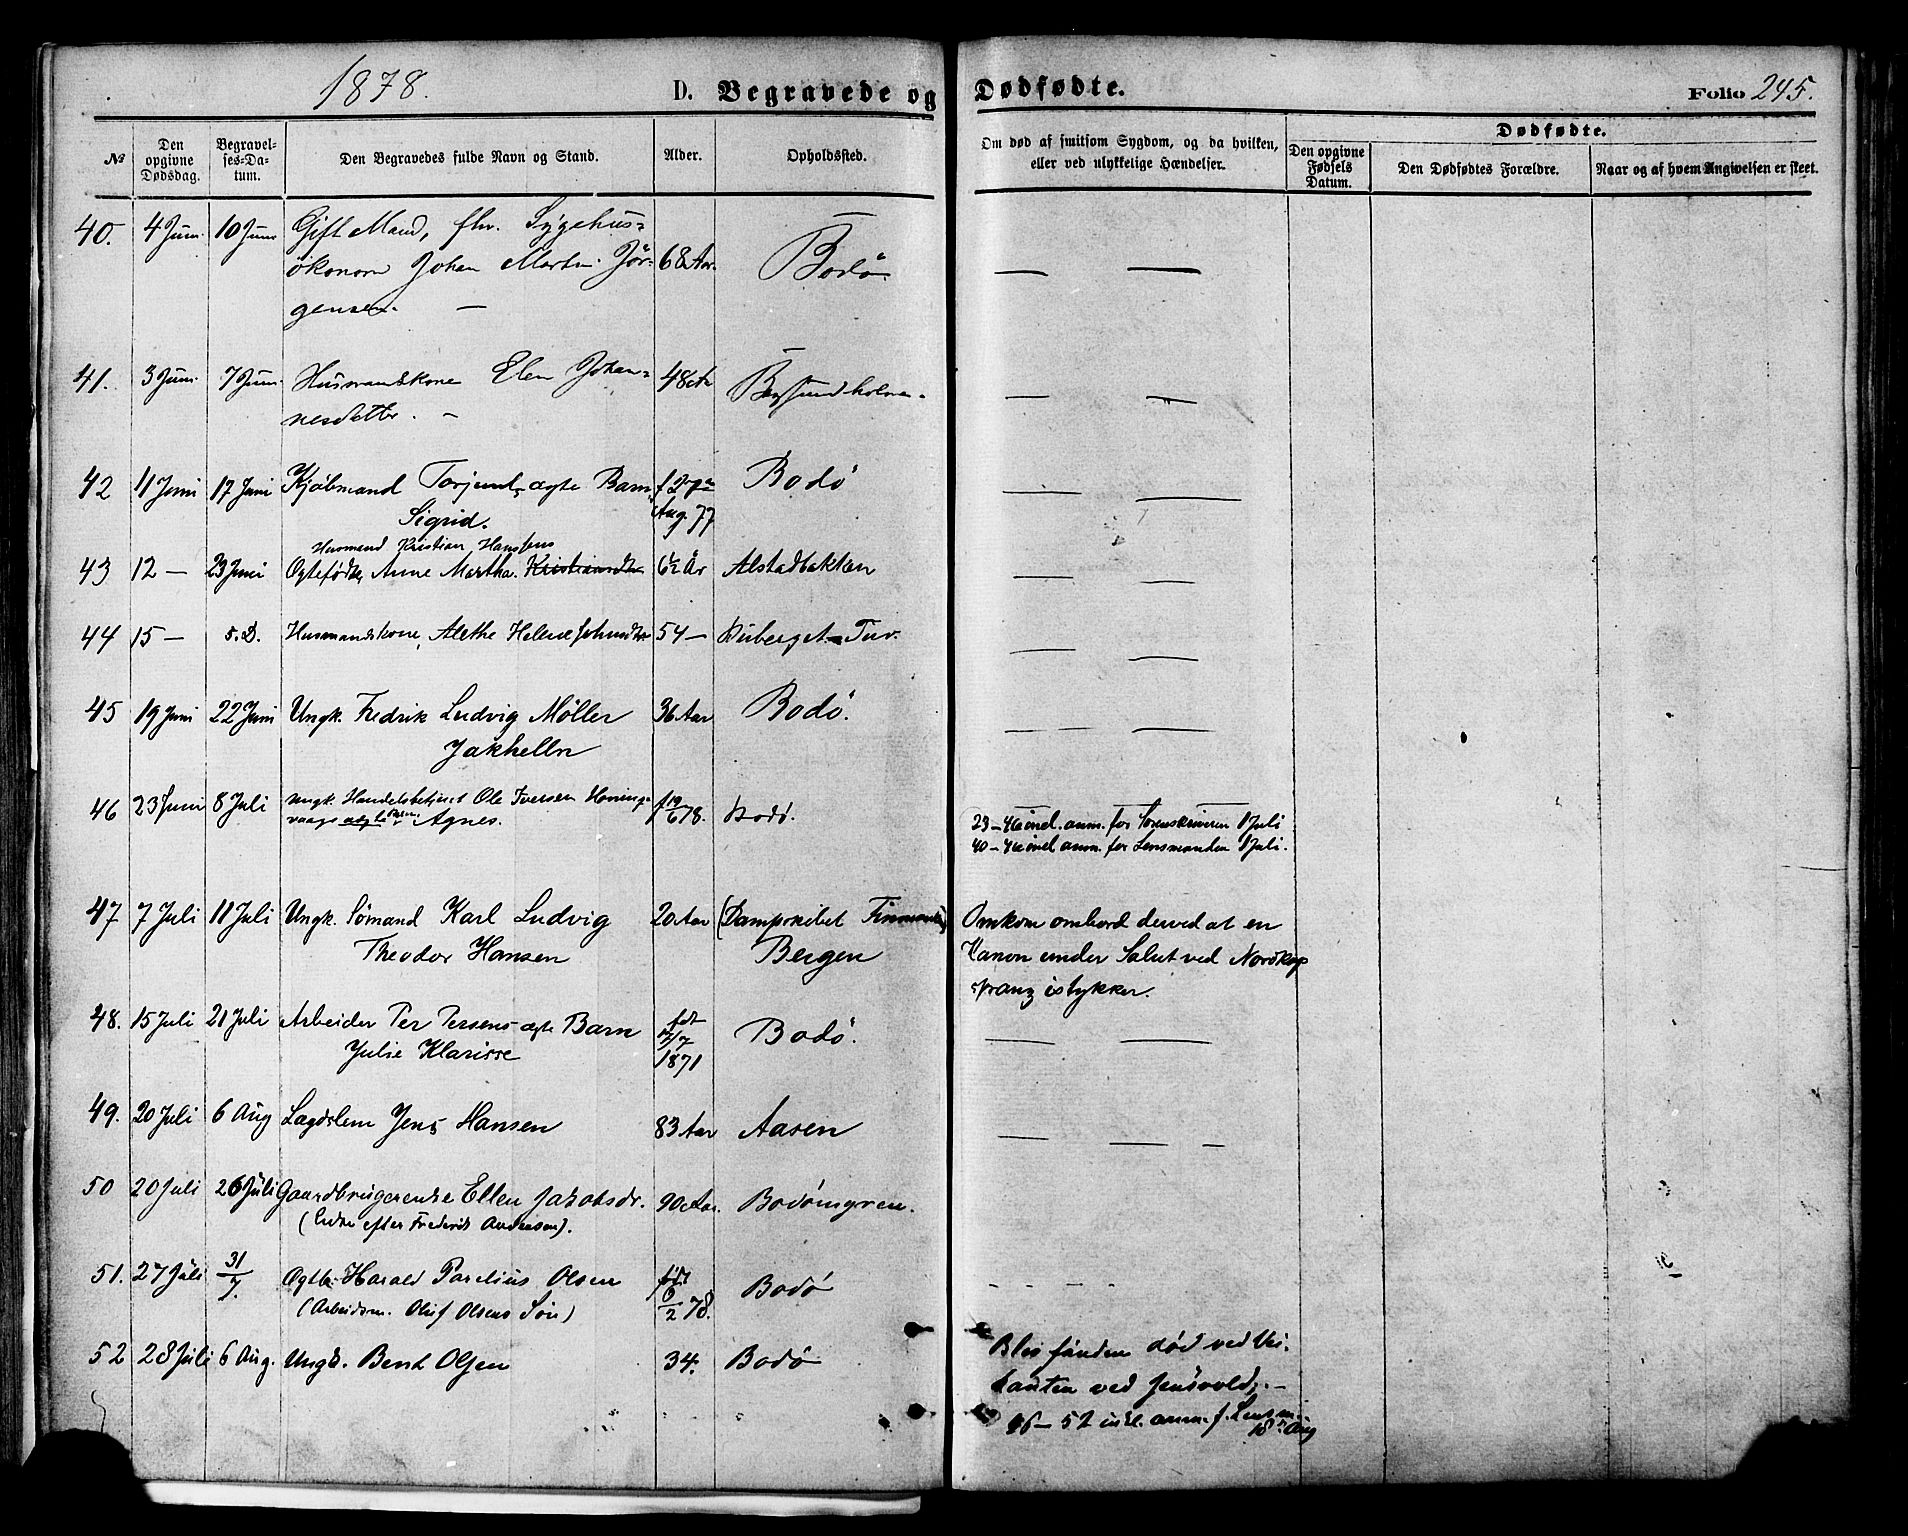 1878.
D. Begravede og Dødfødte.
Folio 245.
№
Den opgivne Dødsdag.
Begravel-ses-Da-tum.
Den Begravedes fulde Navn og Stand.
Alder.
Opholdssted.
Om død af smitsom Sygdom, og da hvilken,
eller ved ulykkelige Hændelser.
Dødfødte.
Den opgivne Fødsels Datum.
Den Dødfødtes Forældre.
Naar og af hvem Angivelsen er skeet.
40. 4 Juni 10 Juni Gift Mand, fhv. Sygehus=
økonom Johan Martin Jör- 68 Aar. Bodö
gensen. —
41. 3 Juni 7 Juni Husmandskone Elen Johan= 48 Aar
nesdatter. —
42 11 Juni 17 Juni Kjøbmand Torjus ægte Barn Bodö
Sigrid. Aug. 77
Husmand Kristian Hansens
43 12 — 23 Juni Ægtefödte Anne Martha Kristiansdtr 6½ År Alstadbakken
44 15 — s. D. Husmandskone, Alethe Helene 54 —
45 19 Juni 22 Juni Ungk. Fredrik Ludvig Möller 36 Aar Bodö.
Jakhelln
46 23 Juni 8 Juli Ungk. Handelsbetjent Ole Iversen Honing-
vaags Agnes. f 19/6 78. Bodö.
23 — 46 incl. anm. for Sorenskriveren 1 Juli
40 — 46 incl. anm. for Lensmanden 1 Juli.
47 7 Juli 11 Juli Ungk. Sömand Karl Ludvig 20 Aar (Dampskibet Finmarken)
Theodor Hansen Bergen
Omkom ombord derved at en
Kanon under Salut ved Nordkap
sprang istykker.
48. 15 Juli 21 Juli Arbeider Per Persens ægte Barn fdt Bodö.
Julie Klarisse 1871
49. 20 Juli 6 Aug Lagdslem Jens Hansen 83 Aar Aasen
50 20 Juli 26 Juli Gaardbrugerenke Ellen Jakobsdr. 90 Aar. Bodömyren.
(Enke efter Frederik Andersen).
51. 27 Juli 31/7. Ægtb. Harald Parelius Olsen född Bodö
(Arbeidsm. Oluf Olsens Sön) /2 78.
52 28 Juli 6 Aug. Ungk. Bernt Olsen 34. Bodö
Blev funden död ved
ved Jensvold. —
46 — 52 inkl. anm. f. Lensm.
18 Aug